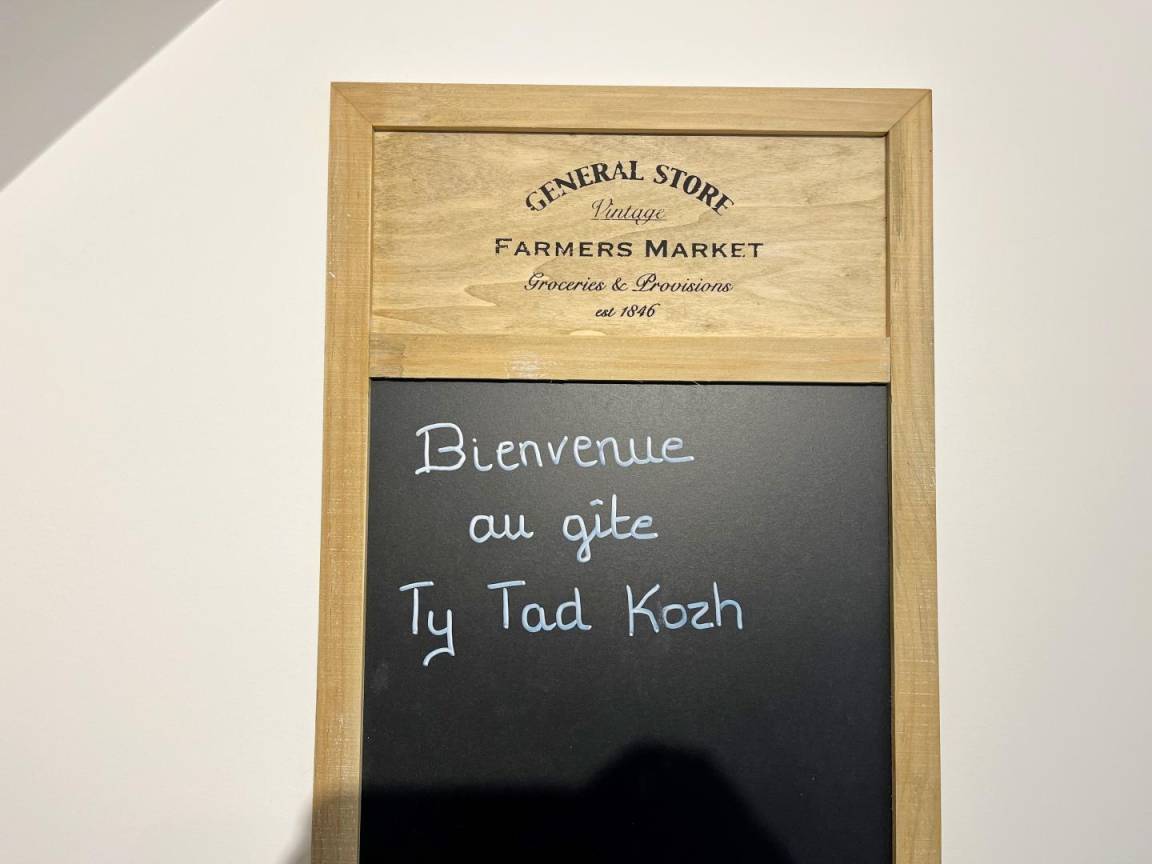 GENERAL STORE
Vintage
FARMERS MARKET
Groceries & Provisions
est 1846
Bienvenue
au gîte
Ty Tad Kozh